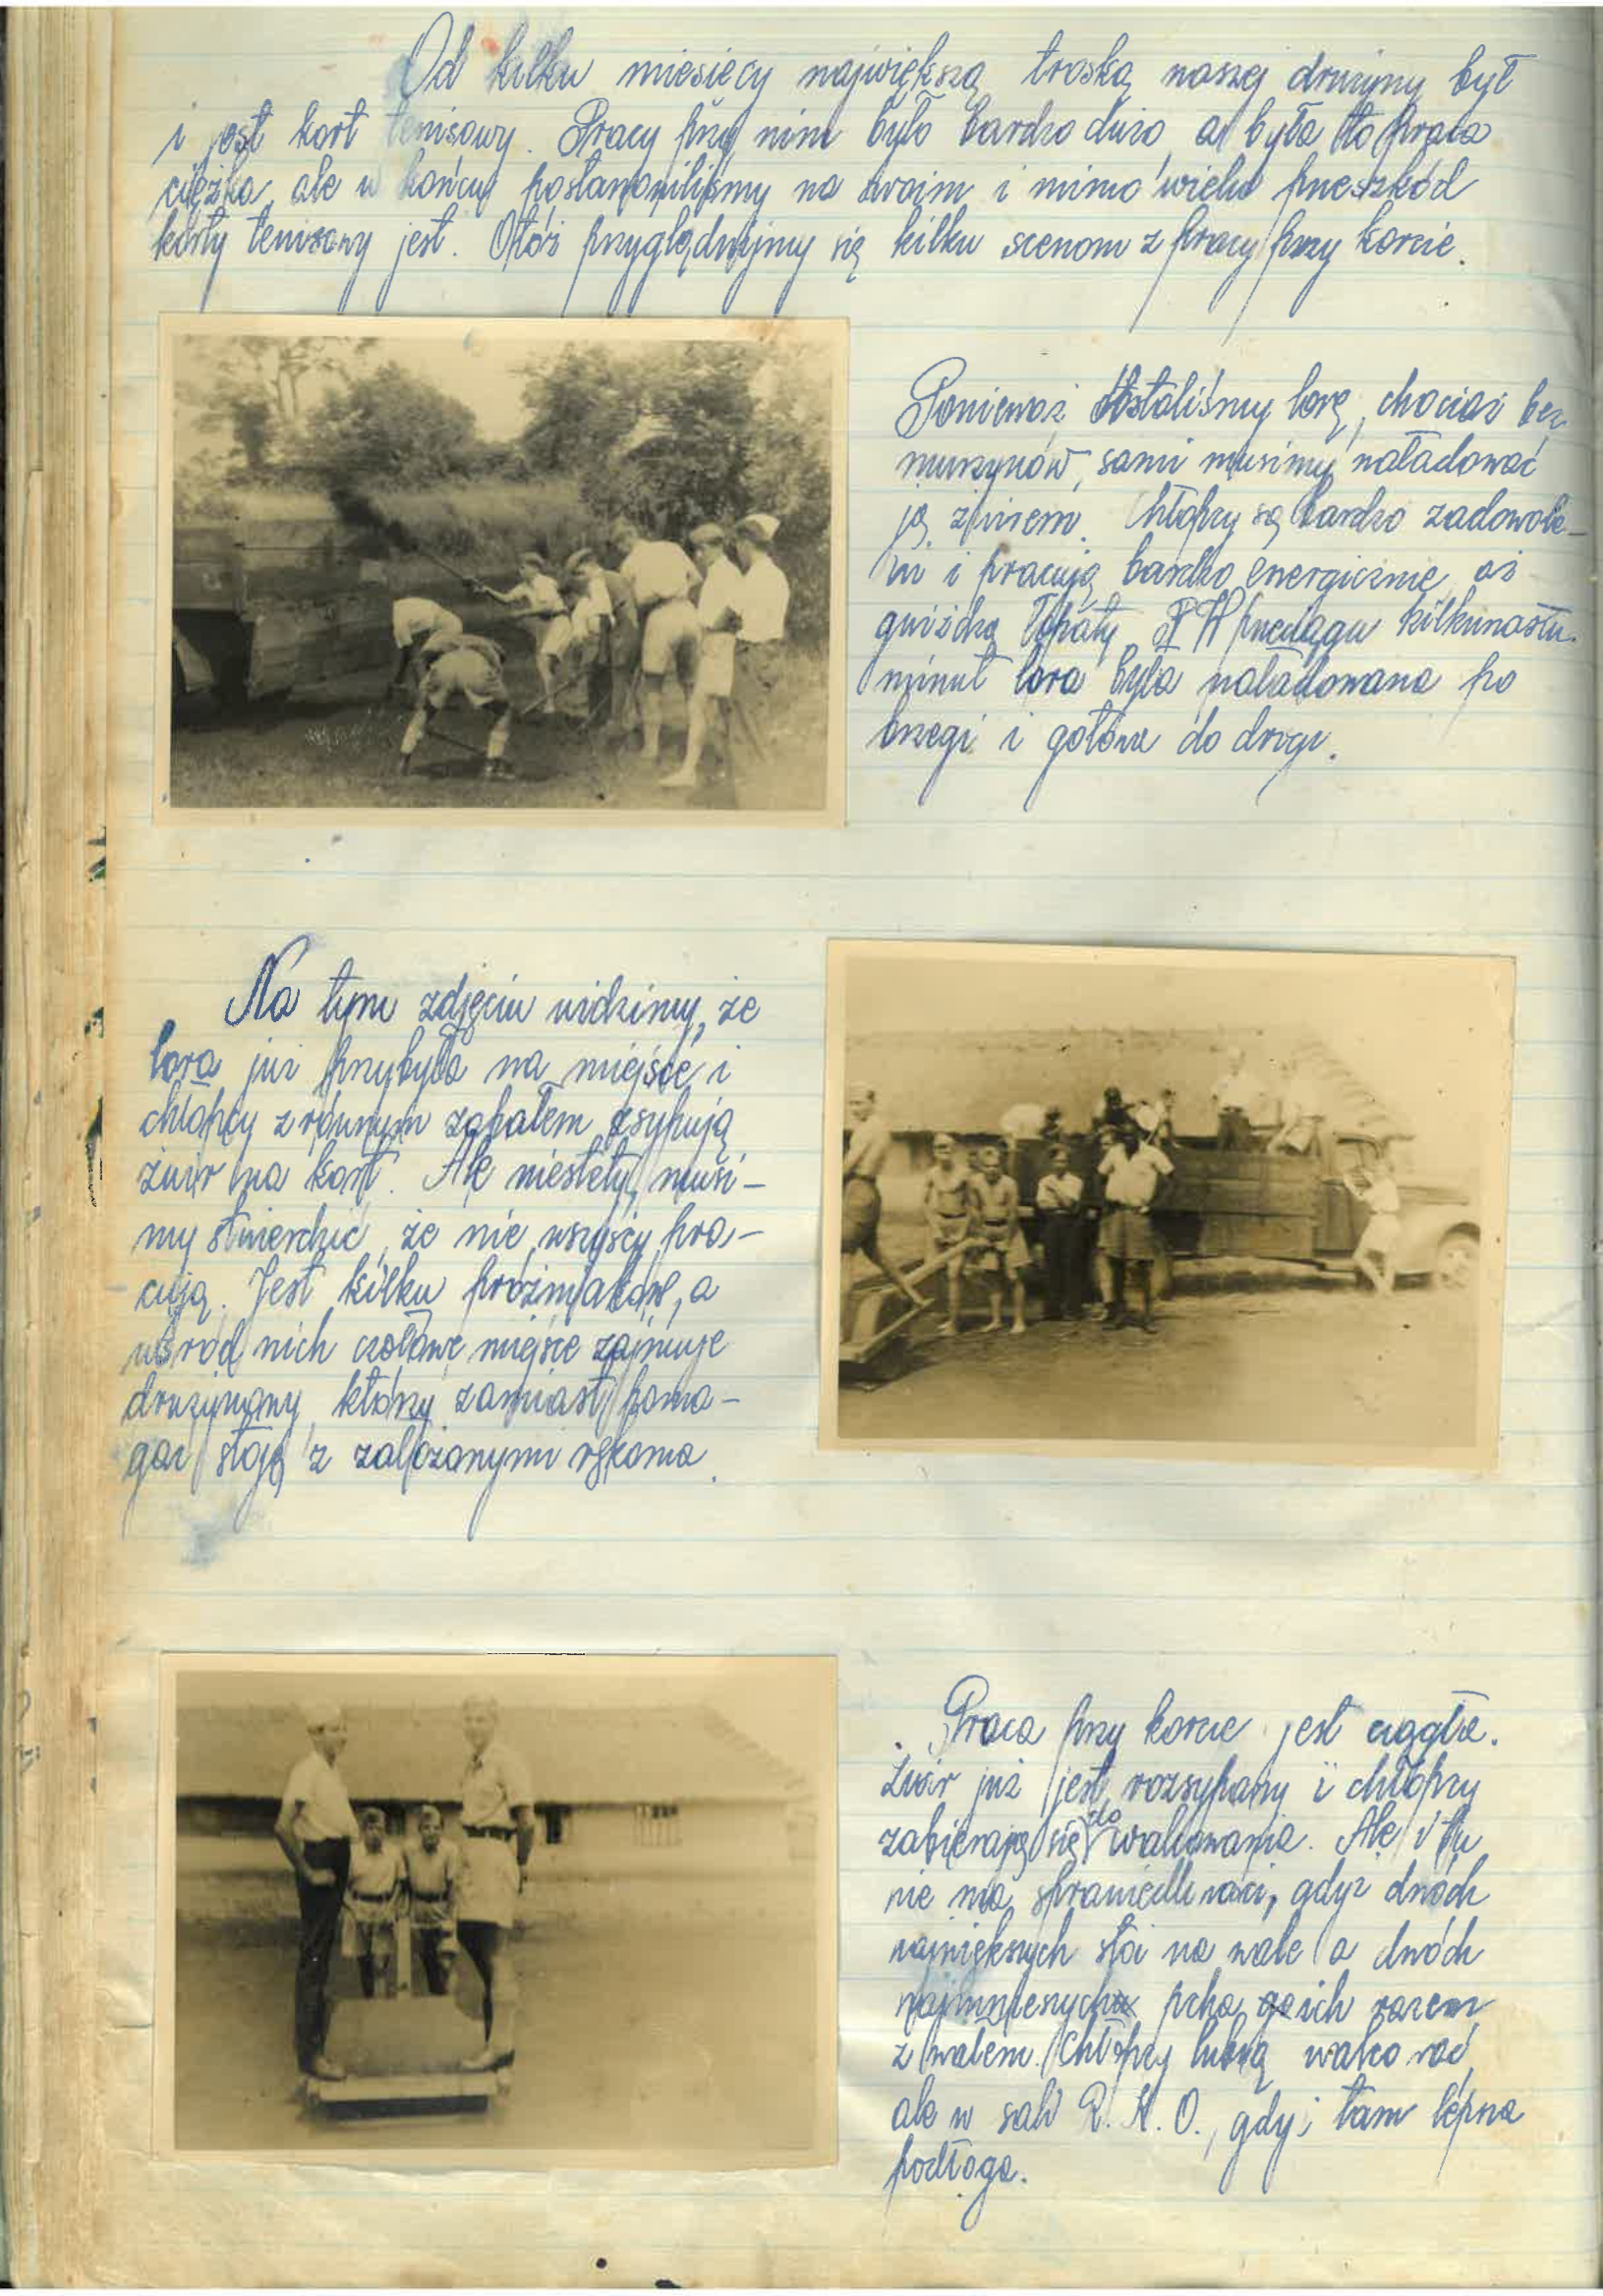 Od kilku miesięcy największą troską naszej drużyny był
i jest kort tenisowy. Pracy przy nim było bardzo dużo a była to praca
ciężka, ale w końcu postanowiliśmy na swoim i mimo wielu przeszkód
korty tenisowy jest. Otóż przyglądnijmy się kilku scenom z pracy przy korcie.
Ponieważ dostaliśmy lorę, chociaż bez
murzynów, sami musimy naładować
ją żwirem. Chłopcy są bardzo zadowole-
ni i pracują bardzo energicznie, aż
gwiżdżą łopaty. W przeciągu kilkunastu
minut lora była naładowana po
brzegi i gotowa do drogi.
Na tym zdjęciu widzimy, że
lora już przybyła na miejsce i
chłopcy z równym zapałem zsypują
żwir na kort. Ale niestety musi-
my stwierdzić, że nie wszyscy pra-
cują. Jest kilku próżniaków, a
wśród nich czołowe miejsce zajmuje
drużynowy, który zamiast poma-
gać stoją z założonymi rękoma.
Praca przy korcie jest ciągła.
Żwir już jest rozsypany i chłopcy
zabierają się do walcowania. Ale i tu
nie ma sprawiedliwości, gdyż dwóch
największych stoi na wale a dwóch
najmniejszych pcha ich razem
z wałem. Chłopcy lubią walcować
ale w sali R. K. O., gdyż tam lepsza
podłoga.